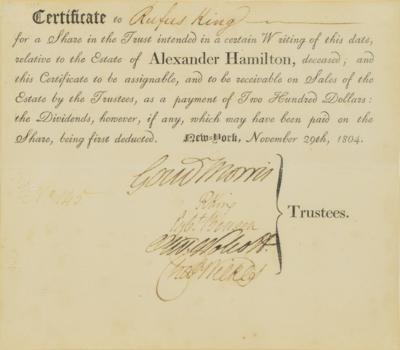 Certificate to Rufus King
for a Share in the Trust intended in a certain Writing of this date,
relative to the Estate of Alexander Hamilton, deceased; and
this Certificate to be assignable, and to be receivable on Sales of the
Estate by the Trustees, as a payment of Two Hundred Dollars:
the Dividends, however, if any, which may have been paid on the
Share, being first deducted. New-York, November 29th, 1804.
Gouv Morris
R King
Egbt Benson
Olivr Wolcott
Chas Wilkes
Trustees.
No 145